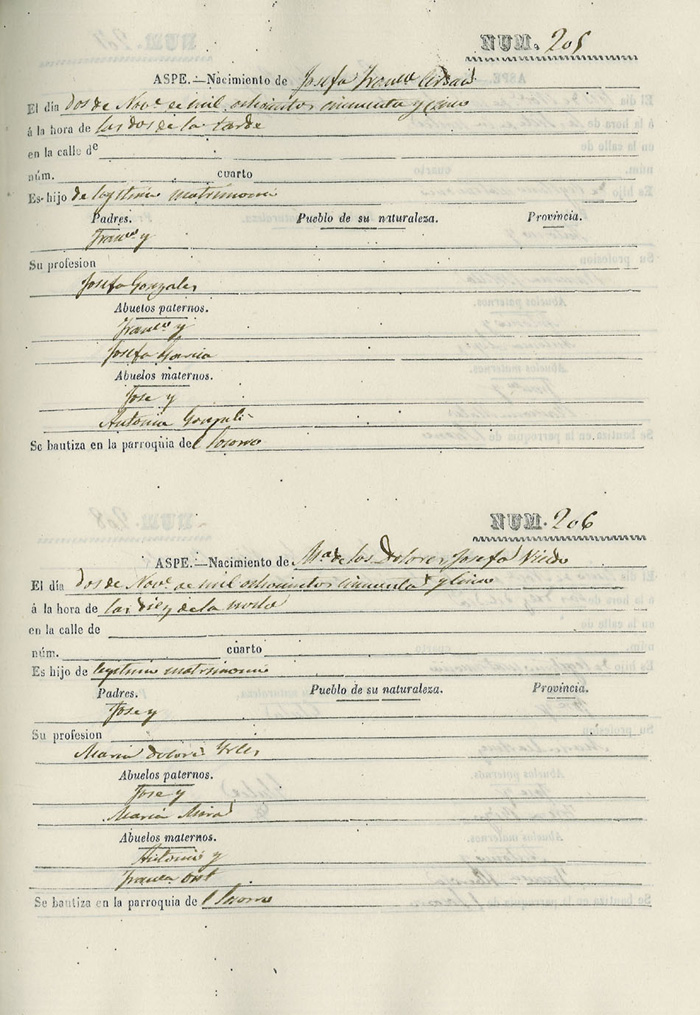 NUM. 205
ASPE.—Nacimiento de Josefa Franca
El dia dos de Nove de mil ochocientos cincuenta y cinco
á la hora de las dos de la tarde
en la calle de
núm. cuarto
Es hijo de legitimo matrimonio
Padres. Pueblo de su naturaleza. Provincia.
Franco y
Su profesion
Josefa Gonzales
Abuelos paternos.
Franco y
Josefa Garcia
Abuelos maternos.
Jose y
Antonia
Se bautiza en la parroquia del Socorro
NUM. 206
ASPE.—Nacimiento de Ma de los Dolores Josefa
El dia dos de Nove de mil ochocientos cincuenta y cinco
á la hora de las diez de la noche
en la calle de
núm. cuarto
Es hijo de legitimo matrimonio
Padres. Pueblo de su naturaleza. Provincia.
Jose y
Su profesion
Maria dolores
Abuelos paternos.
Jose y
Maria Mira
Abuelos maternos.
Antonio y
Franca
Se bautiza en la parroquia de l Socorro